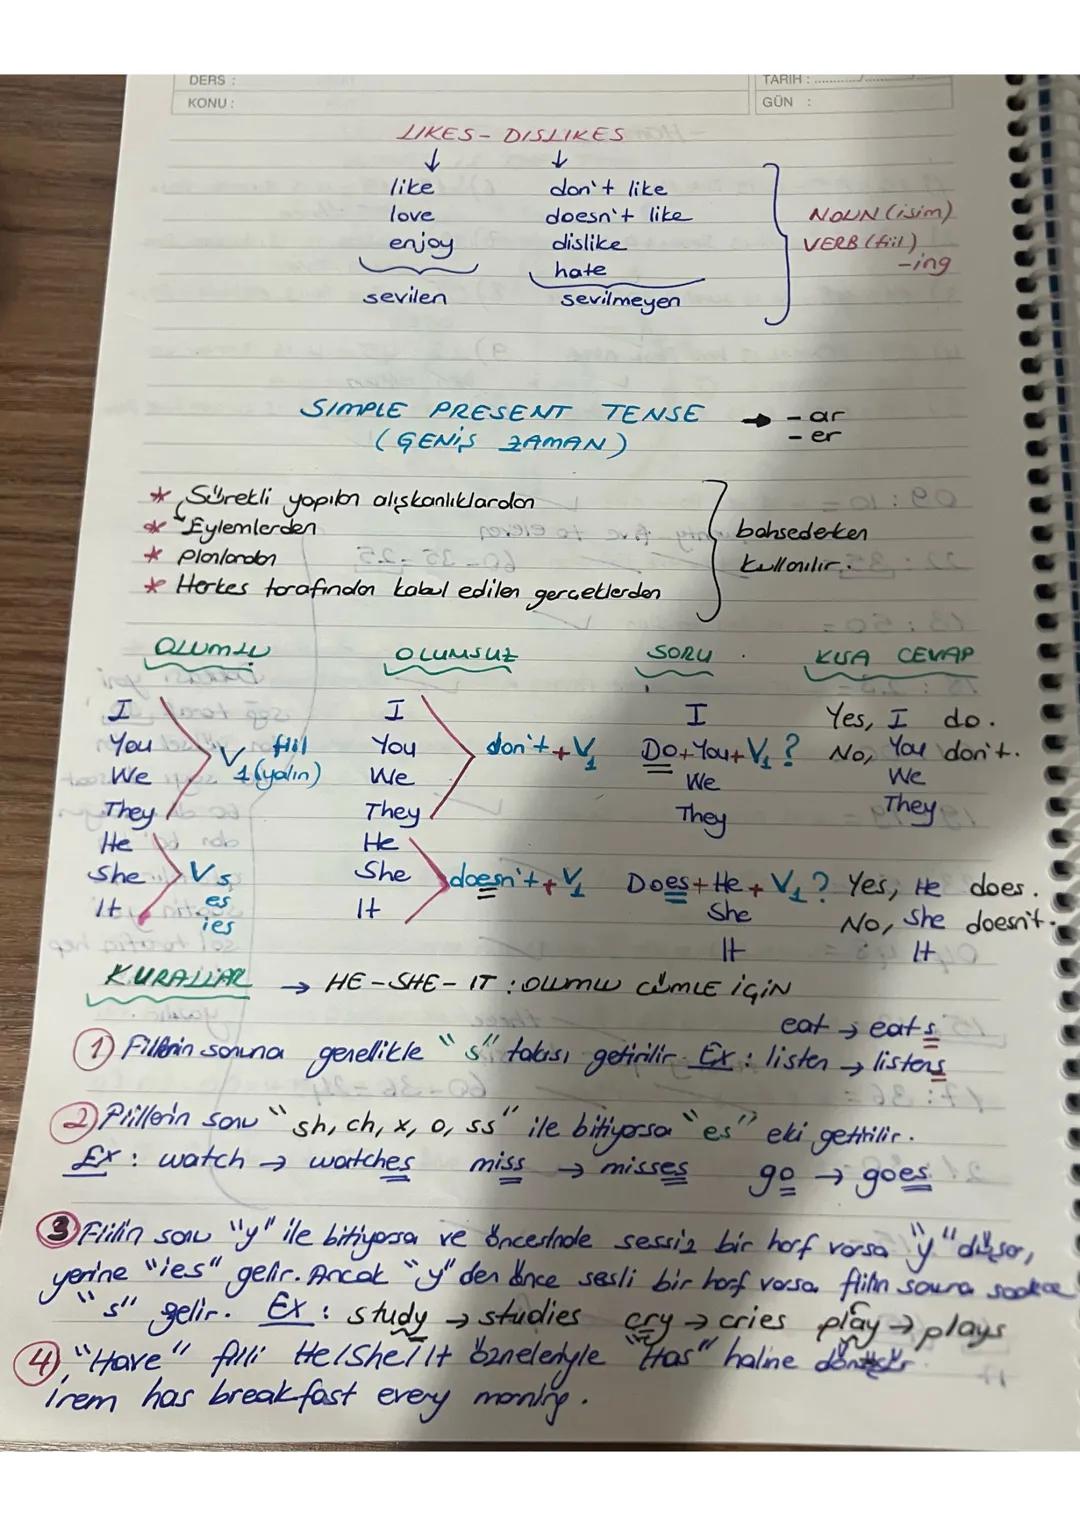 DERS :
TARİH :
KONU :
GÜN :
LIKES - DISLIKES
like don't like
love doesn't like NOUN (isim)
enjoy dislike VERB (fiil)
hate -ing
sevilen sevilmeyen
SIMPLE PRESENT TENSE → - ar
(GENİŞ ZAMAN) - er
* Sürekli yapılan alışkanlıklardan
* Eylemlerden bahsederken
* Planlardan kullanılır.
* Herkes tarafından kabul edilen gerçeklerden
OLUMLU OLUMSUZ SORU KISA CEVAP
I I I Yes, I do.
You V1 fiil (yalın) You don't + V1 Do + You + V1 ? No, You don't.
We We We We
They They They They
He He
She V s, She doesn't + V1 Does + He + V1 ? Yes, He does.
It es It She No, She doesn't.
ies It It
KURALLAR → HE - SHE - IT : OLUMLU CÜMLE İÇİN
eat → eats
1) Fiillerin sonuna genellikle "s" takısı getirilir. Ex : listen → listens
2) Fiillerin sonu "sh, ch, x, o, ss" ile bitiyorsa "es" eki getirilir.
Ex : watch → watches miss → misses go → goes
3 Fiilin sonu "y" ile bitiyorsa ve öncesinde sessiz bir harf varsa "y" düşer,
yerine "ies" gelir. Ancak "y" den önce sesli bir harf varsa fiilin sonuna sadece
"s" gelir. Ex : study → studies cry → cries play → plays
4) "Have" fiili He/She/It özneleriyle "Has" haline
İrem has breakfast every morning.